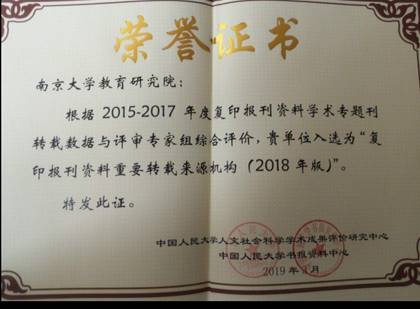 荣誉证书
南京大学教育研究院：
根据 2015-2017 年度复印报刊资料学术专题刊
转载数据与评审专家组综合评价，贵单位入选为“复
印报刊资料重要转载来源机构（2018 年版）”。
特发此证。
中国人民大学人文社会科学学术成果评价研究中心
中国人民大学书报资料中心
2019 年 3月